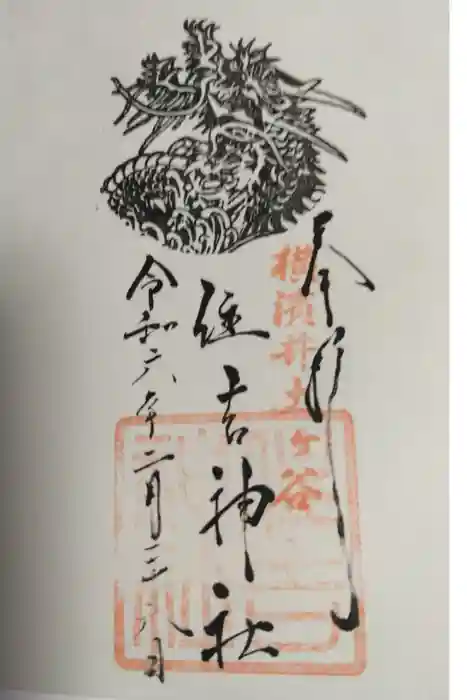 奉拝
横濱井土ヶ谷
住吉神社
令和六年二月二十八日